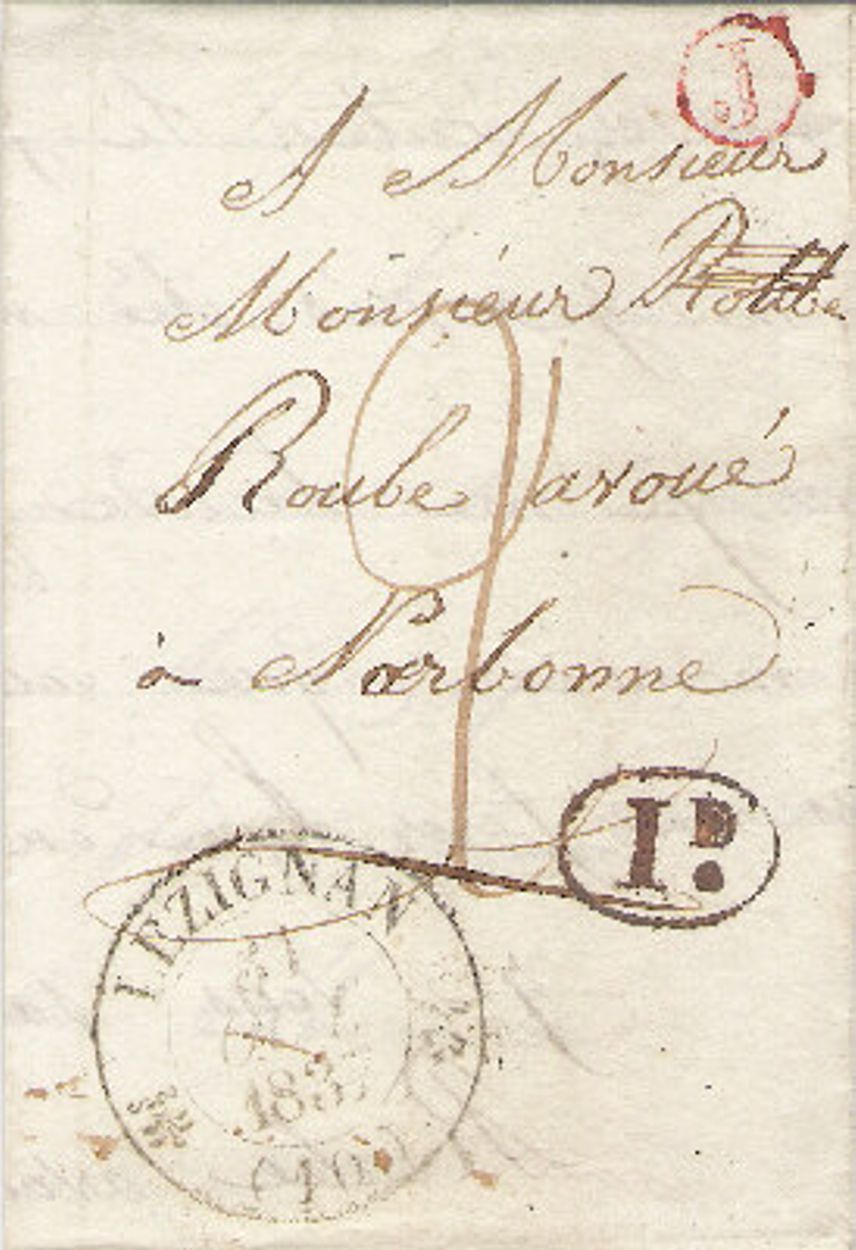 J
A Monsieur
Monsieur Roube
Roube avoué
à Narbonne
1D.
LEZIGNAN
183
(10)